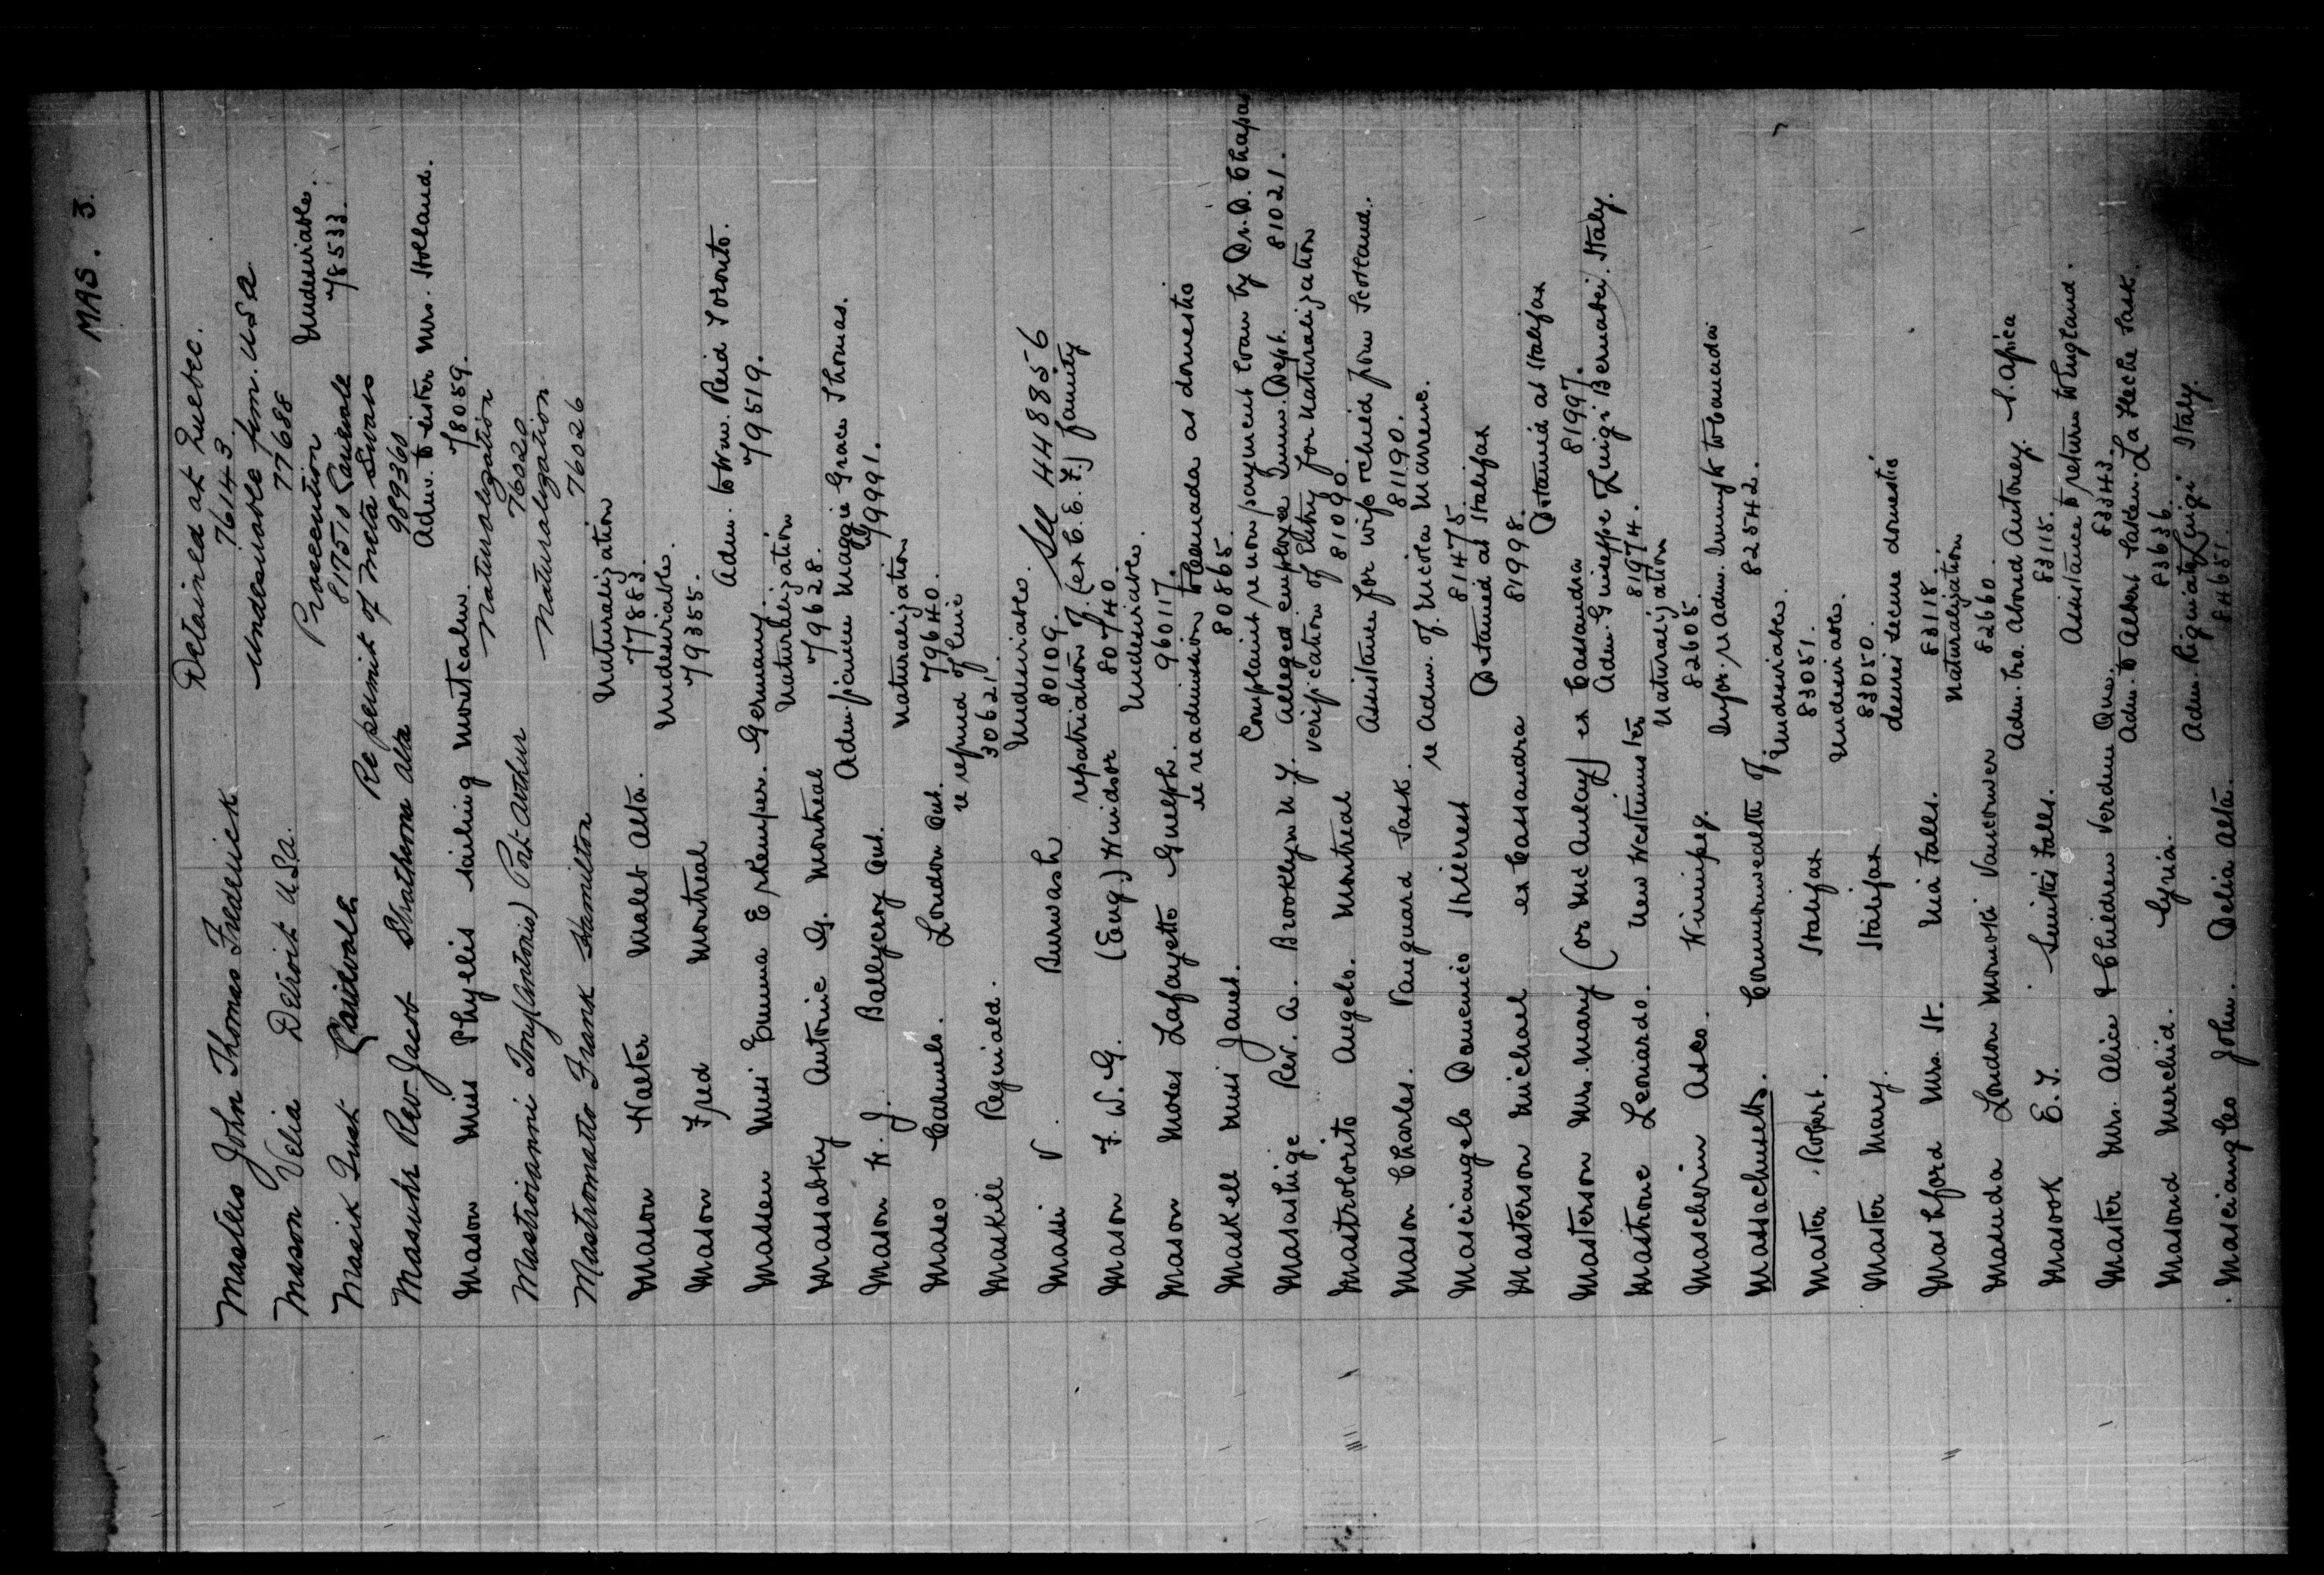 MAS. 3.
Detained at Quebec.
Masters John Thomas Frederick 76143.
Undesirable frm. U.S.A.
Mason Velia Detroit U.S.A. 77688
Prosecution Undesirable.
Masik Tusk 81975 78533.
Re permit of Meta Swass
Massuhr Rev Jacob Strathcona Alta 989360
Adm. to sister Mrs. Holland.
Mason Miss Phyllis sailing Montcalm. 78059.
Naturalization
Mastroianni Tony (Antonio) Port Arthur 76020
Naturalization
Mastromatto Frank Hamilton 76026
Naturalization
Mason Walter Alta. 77883.
Undesirable.
Mason Fred Montreal 79355.
Adm. to Wm. Reid Toronto.
Massen Miss Emma E Germany. 79519.
Naturalization
Massabky Antoine G. Montreal 79628.
Adm. fiancee Maggie Grace Thomas.
Mason W. J. Ballycroy Ont. 79991.
Naturalization
Maseo Carmelo. London Ont. 79640.
re refund of fine
Maskill Reginald. 30621.
Undesirable.
Massi V. Burwash 80109. See 448856
repatriation of (ex C.E.F.) family
Mason F. W. G. (Eng.) Windsor 80740
Undesirable.
Mason Moses Lafayette Guelph. 960117.
re readmission to Canada as domestic
Maskell Miss Janet. 80865.
Complaint re non payment loan by Dr. D.
Masashige Rev. A. Brooklyn N.Y. Alleged employee Immn. Dept. 81021.
Verification of Entry for Naturalization
Mastrolorito Angelo. Montreal 81090.
Assistance for wife & child from Scotland.
Mason Charles. Vanguard Sask. 81190.
re Adm. of Nicola Marrese.
Masciangelo Domenico Hillcrest 81475.
Detained at Halifax
Masterson Michael ex Cassandra 81998.
Detained at Halifax
Masterson Mrs. Mary (or McAulay) ex Cassandra 81997.
Adm. Guiseppe Luigi Bernabei. Italy.
Mastrone Leonardo. New Westminster 81974.
Naturalization
Mascherin Aseo. Winnipeg. 82605.
Infor. re Adm. Immgts to Canada
Massachusetts. Commonwealth of 82542.
Undesirable.
Master Robert. Halifax 83051.
Undesirable.
Master Mary. Halifax 83050.
desires secure domestic
Mashford Mrs. H. Nia Falls. 83118.
Naturalization
Masuda London Vancouver 82660.
Adm. bro. Abood Antoney. S. Africa
Masook E. J. Smiths Falls. 83115.
Assistance to return to England.
Master Mrs. Alice & Children Verdun Que. 83343.
Adm. to Albert Saken. La Fleche Sask.
Masoud Merchid. Syria. 83636.
Adm. Luigi Italy.
Masciangleo John. Delia Alta. 84651.